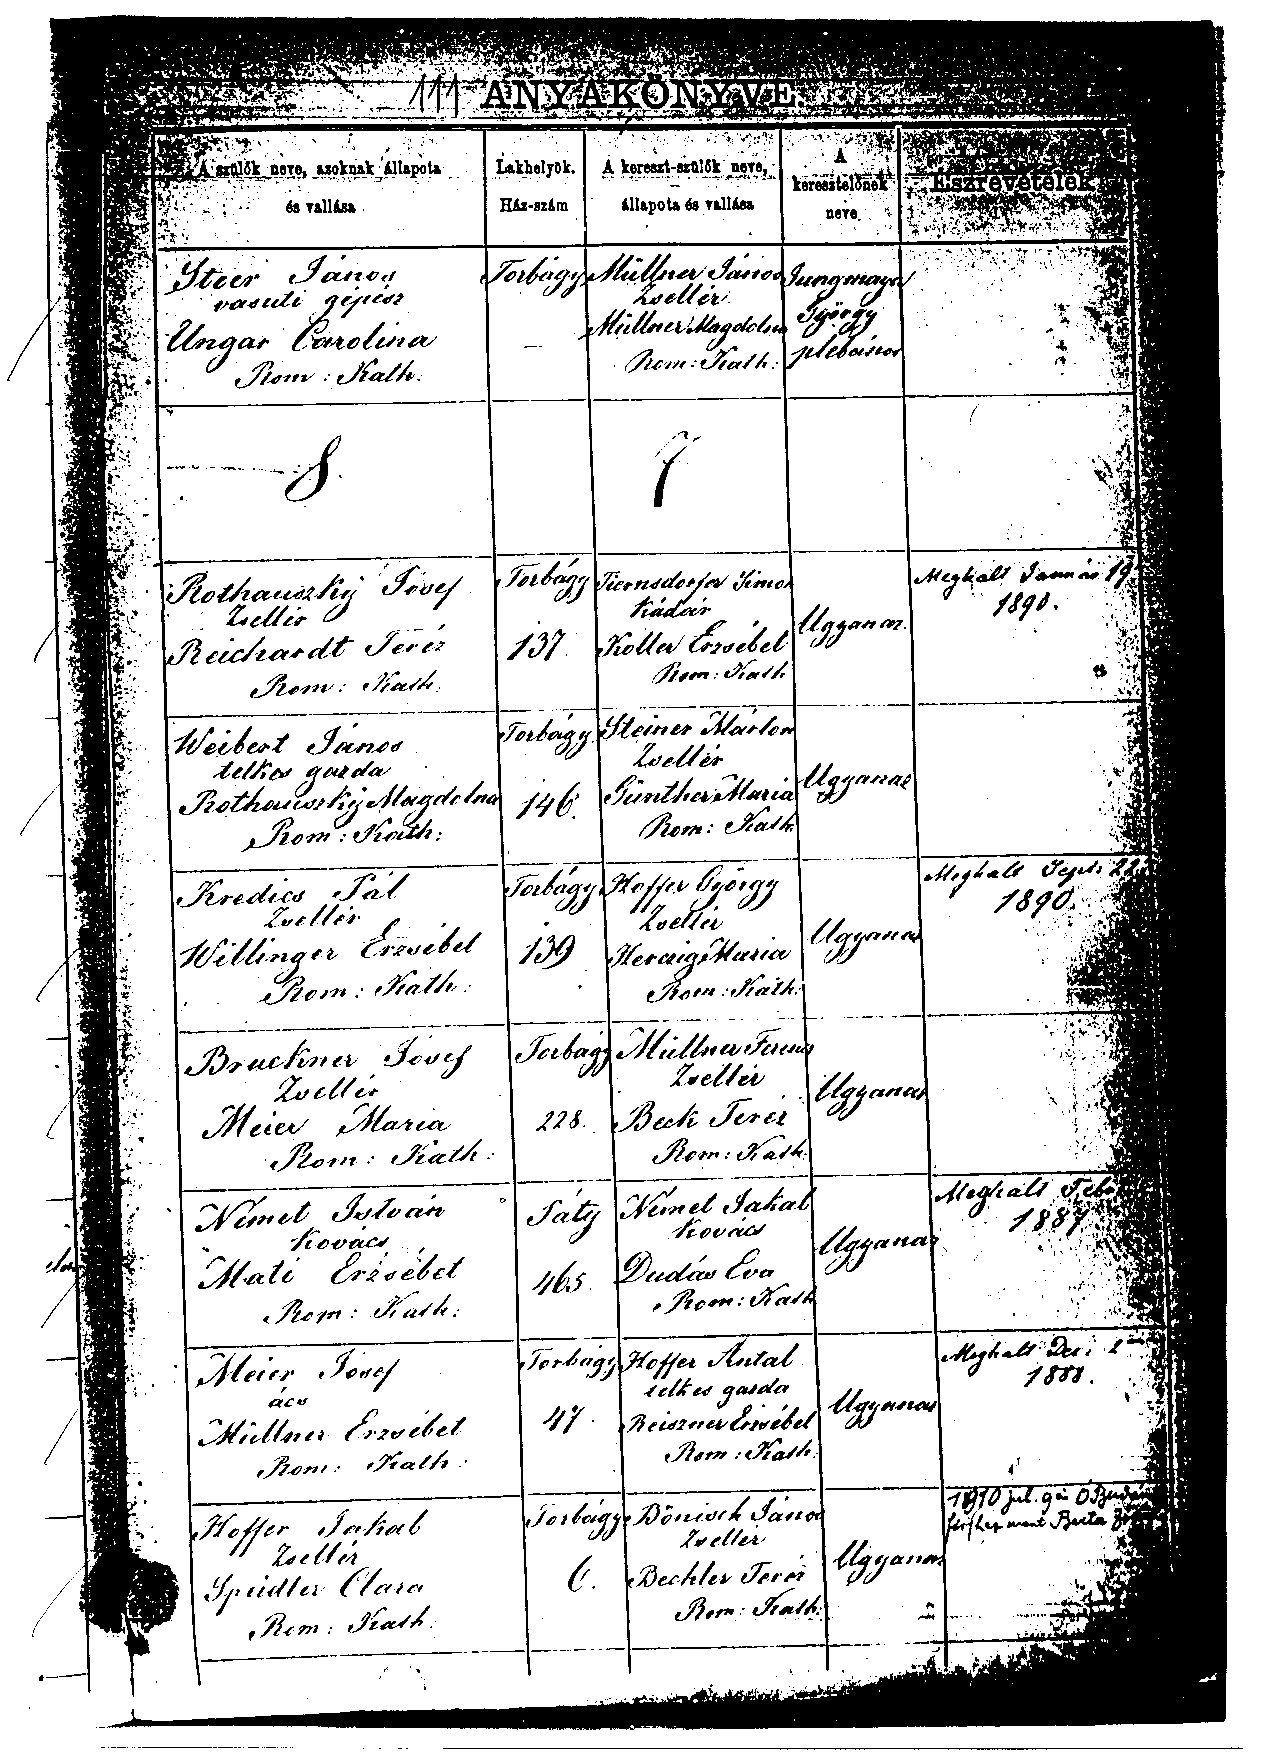 111 ANYAKÖNYVE
A szülők neve, azoknak állapota
és vallása
Lakhelyök.
Ház-szám
A kereszt-szülők neve,
állapota és vallása
A
keresztelőnek
neve
Észrevételek
Steer János
vasuti gépész
Ungar Carolina
Rom: Kath:
Torbágy
—
Müllner János
Zsellér
Müllner Magdolna
Rom: Kath:
Jungmayer
György
plebános
8.
7
Rothauszky Josef
Zsellér
Reichardt Teréz
Rom: Kath:
Torbágy
137.
Tiernsdorfer Simon
Kádár
Koller Erzsébet
Rom: Kath
Ugyanaz.
Meghalt Január 19
1890.
Weibert János
telkes gazda
Rothauszky Magdolna
Rom: Kath:
Torbágy
146.
Steiner Márton
Zsellér
Günther Maria
Rom: Kath:
Ugyanaz
Kredics Pál
Zsellér
Willinger Erzsébet
Rom: Kath:
Torbágy
139
Hoffer György
Zsellér
Herczig Maria
Rom: Kath:
Ugyanaz
Meghalt Sept: 22
1890.
Bruckner Josef
Zsellér
Meier Maria
Rom: Kath:
Torbágy
228.
Müllner Ferenc
Zsellér
Beck Teréz
Rom: Kath:
Ugyanaz
Német István
Kovács
Mati Erzsébet
Rom: Kath:
Páty
465.
Német Jakab
Kovács
Dudás Eva
Rom: Kath
Ugyanaz
Meghalt Feb
1887.
Meier Josef
ács
Müllner Erzsébet
Rom: Kath:
Torbágy
47.
Hoffer Antal
telkes gazda
Reiszner Erzsébet
Rom: Kath.
Ugyanaz
Meghalt Dec: 2
1888.
Hoffer Jakab
Zsellér
Speidler Clara
Rom: Kath.
Torbágy
6.
Bönisch János
Zsellér
Bechler Teréz
Rom: Kath:
Ugyanaz
1910 jul. 9én Ó Budán
férjhez ment Buta